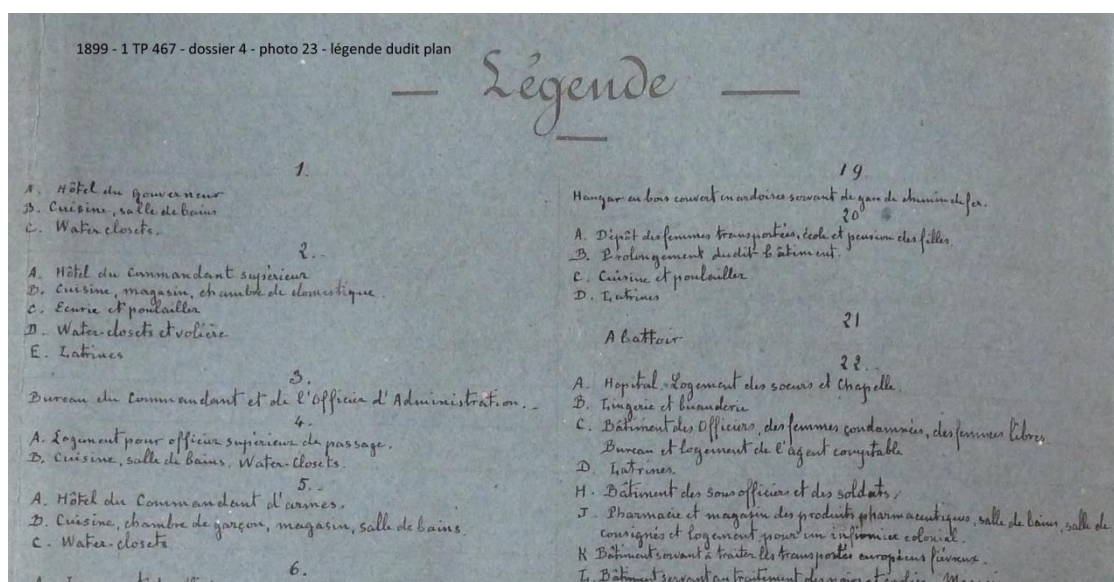 1899 - 1 TP 467 - dossier 4 - photo 23 - légende dudit plan
— Légende —
1.
A. Hôtel du Gouverneur
B. Cuisine, salle de bains
C. Water closets.
2.
A. Hôtel du Commandant supérieur
B. Cuisine, magasin, chambre de domestique.
C. Ecurie et poulailler
D. Water-closets et volière
E. Latrines
3.
Bureau du Commandant et de l'Officier d'Administration.
4.
A. Logement pour officier supérieur de passage.
B. Cuisine, salle de bains, Water-Closets.
5.
A. Hôtel du Commandant d'armes.
B. Cuisine, chambre de garçon, magasin, salle de bains.
C. Water-closets
6.
19.
Hangar en bois couvert en ardoises servant de gare de chemin de fer.
20
A. Dépôt des femmes transportées, école et pension des filles.
B. Prolongement dudit bâtiment.
C. Cuisine et poulailler
D. Latrines
21
Abattoir
22.
A. Hopital. Logement des soeurs et Chapelle.
B. Lingerie et buanderie
C. Bâtiment des Officiers, des femmes condamnées, des femmes libres
Bureau et logement de l'agent comptable
D. Latrines.
H. Bâtiment des sous officiers et des soldats,
J. Pharmacie et magasin des produits pharmaceutiques, salle de bains, salle de
consignés et logement pour un infirmier colonial.
K Bâtiment servant à traiter les transportés européens fiévreux.
L. Bâtiment servant au traitement des